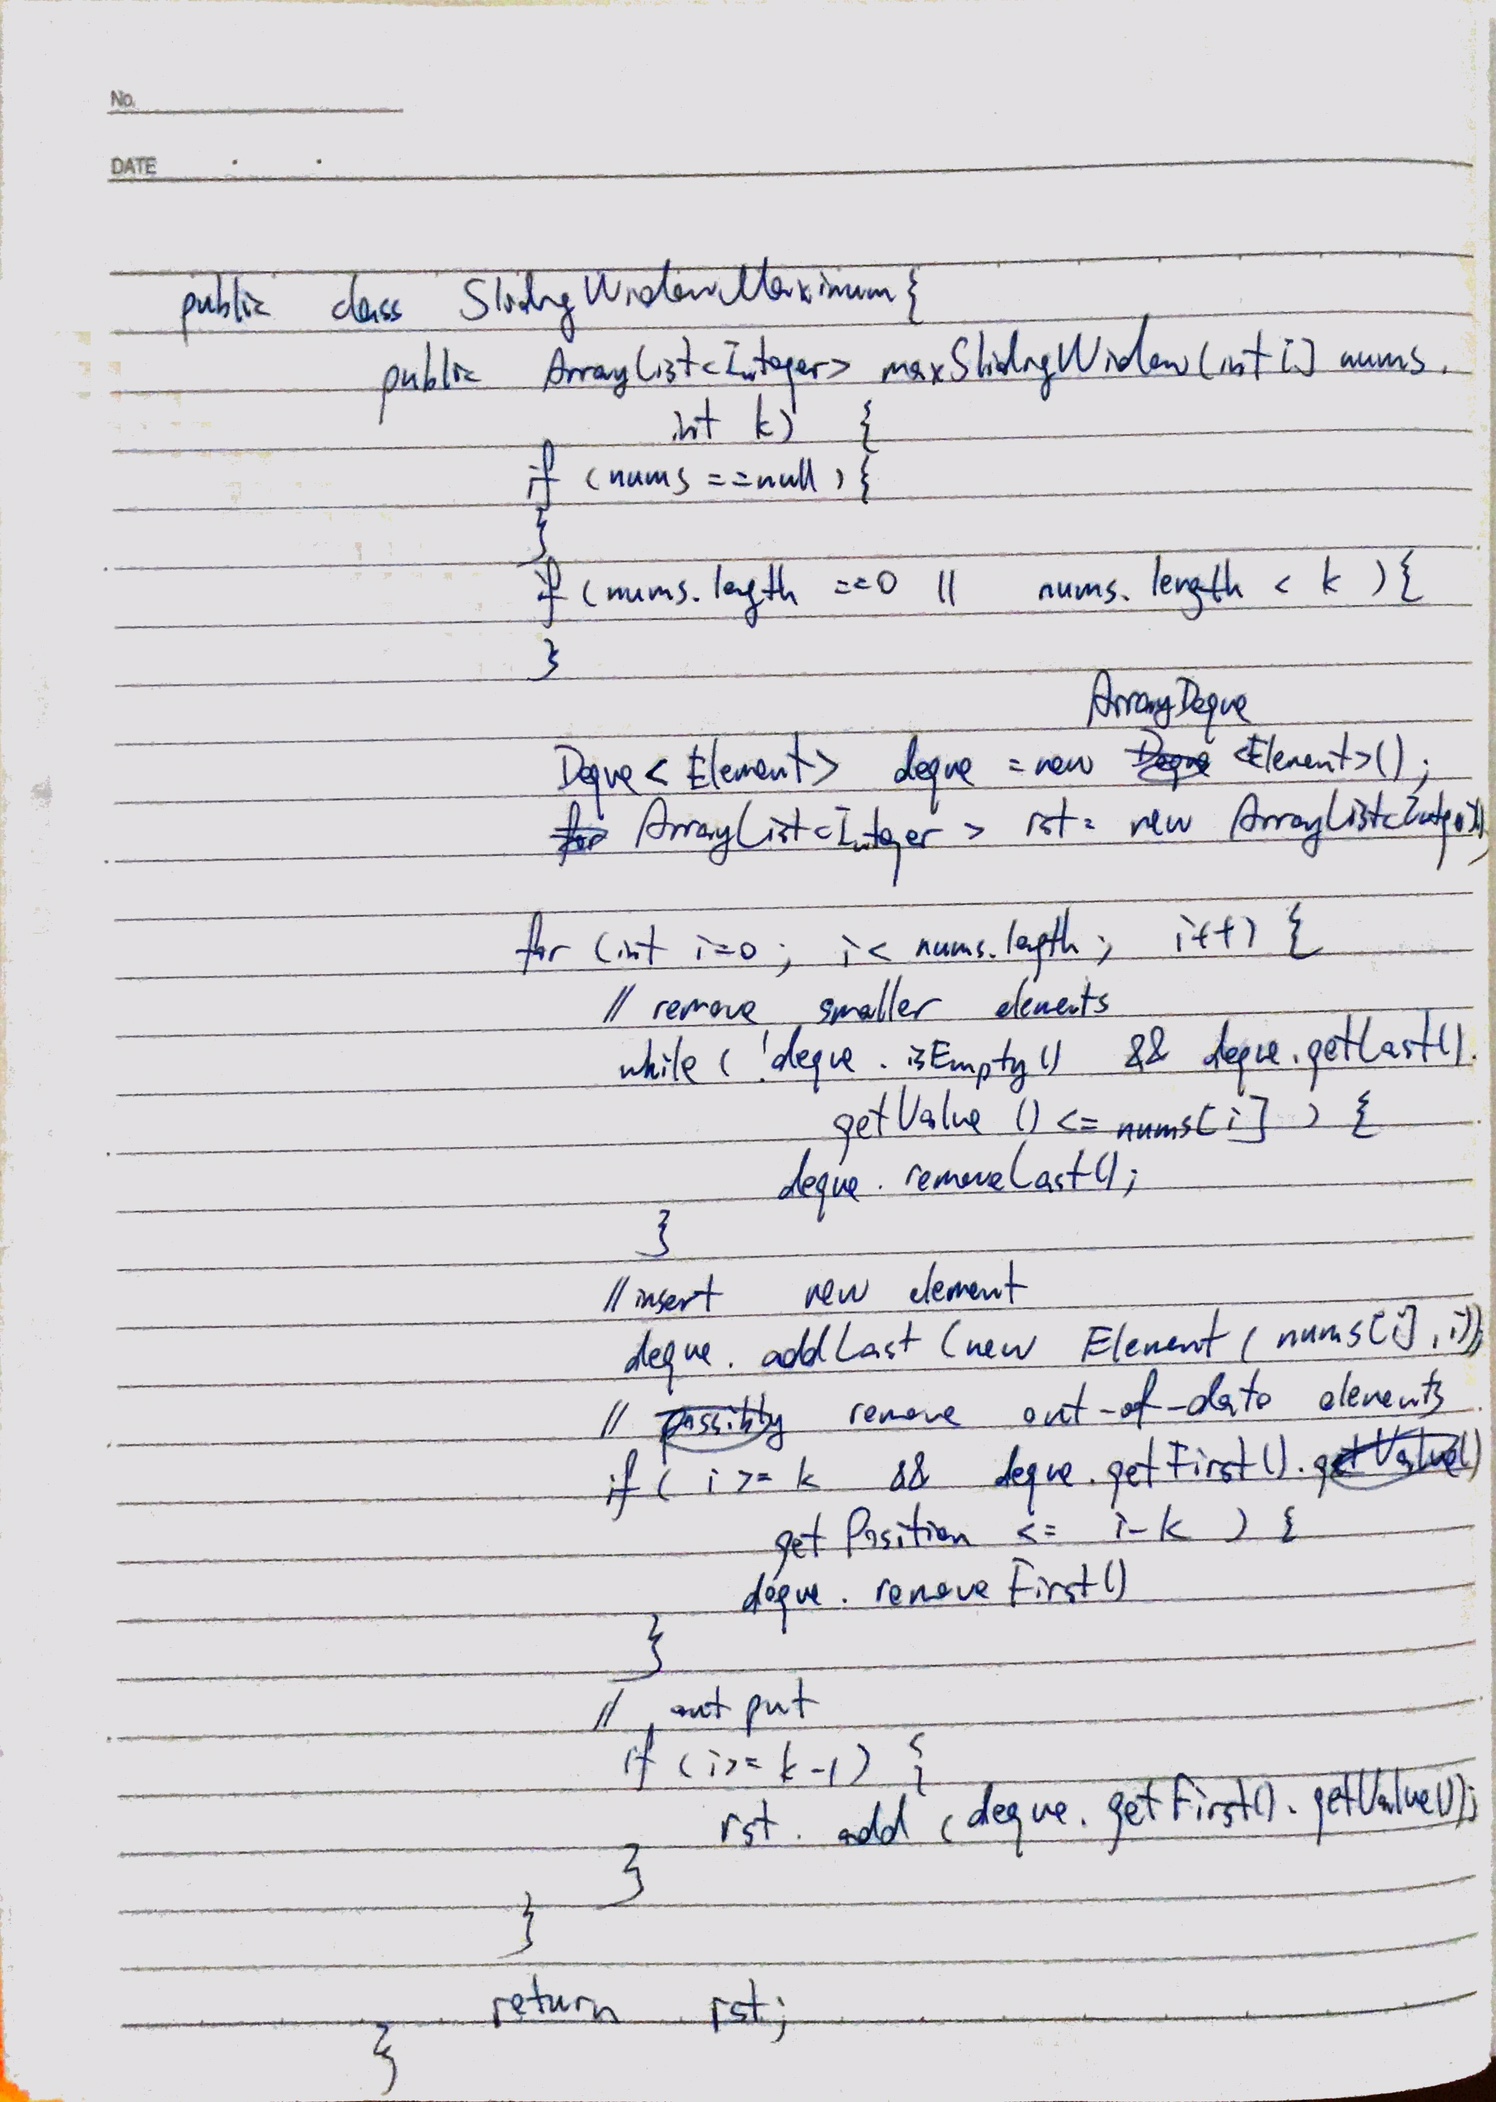 No.
DATE
public class SlidingWindowMaximum{
public ArrayList<Integer> maxSlidingWindow(int[] nums,
int k) {
if (nums ==null) {
}
if (nums.length ==0 || nums.length < k ){
}
ArrayDeque
Deque< Element> deque = new Deque <Element>();
for ArrayList<Integer > rst= new ArrayList<Integer>();
for (int i=0; i< nums.length; i++) {
// remove smaller elements
while ( !deque . isEmpty() && deque.getLast().
getValue () <= nums[i] ) {
deque. removeLast();
}
//insert new element
deque. addLast (new Element ( nums[i], i));
// possibly remove out-of-date elements
if ( i >= k && deque.getFirst().getValue()
getPosition <= i-k ) {
deque. removeFirst()
}
// output
if (i>= k-1) {
rst. add (deque. getFirst(). getValue());
}
}
return rst;
}